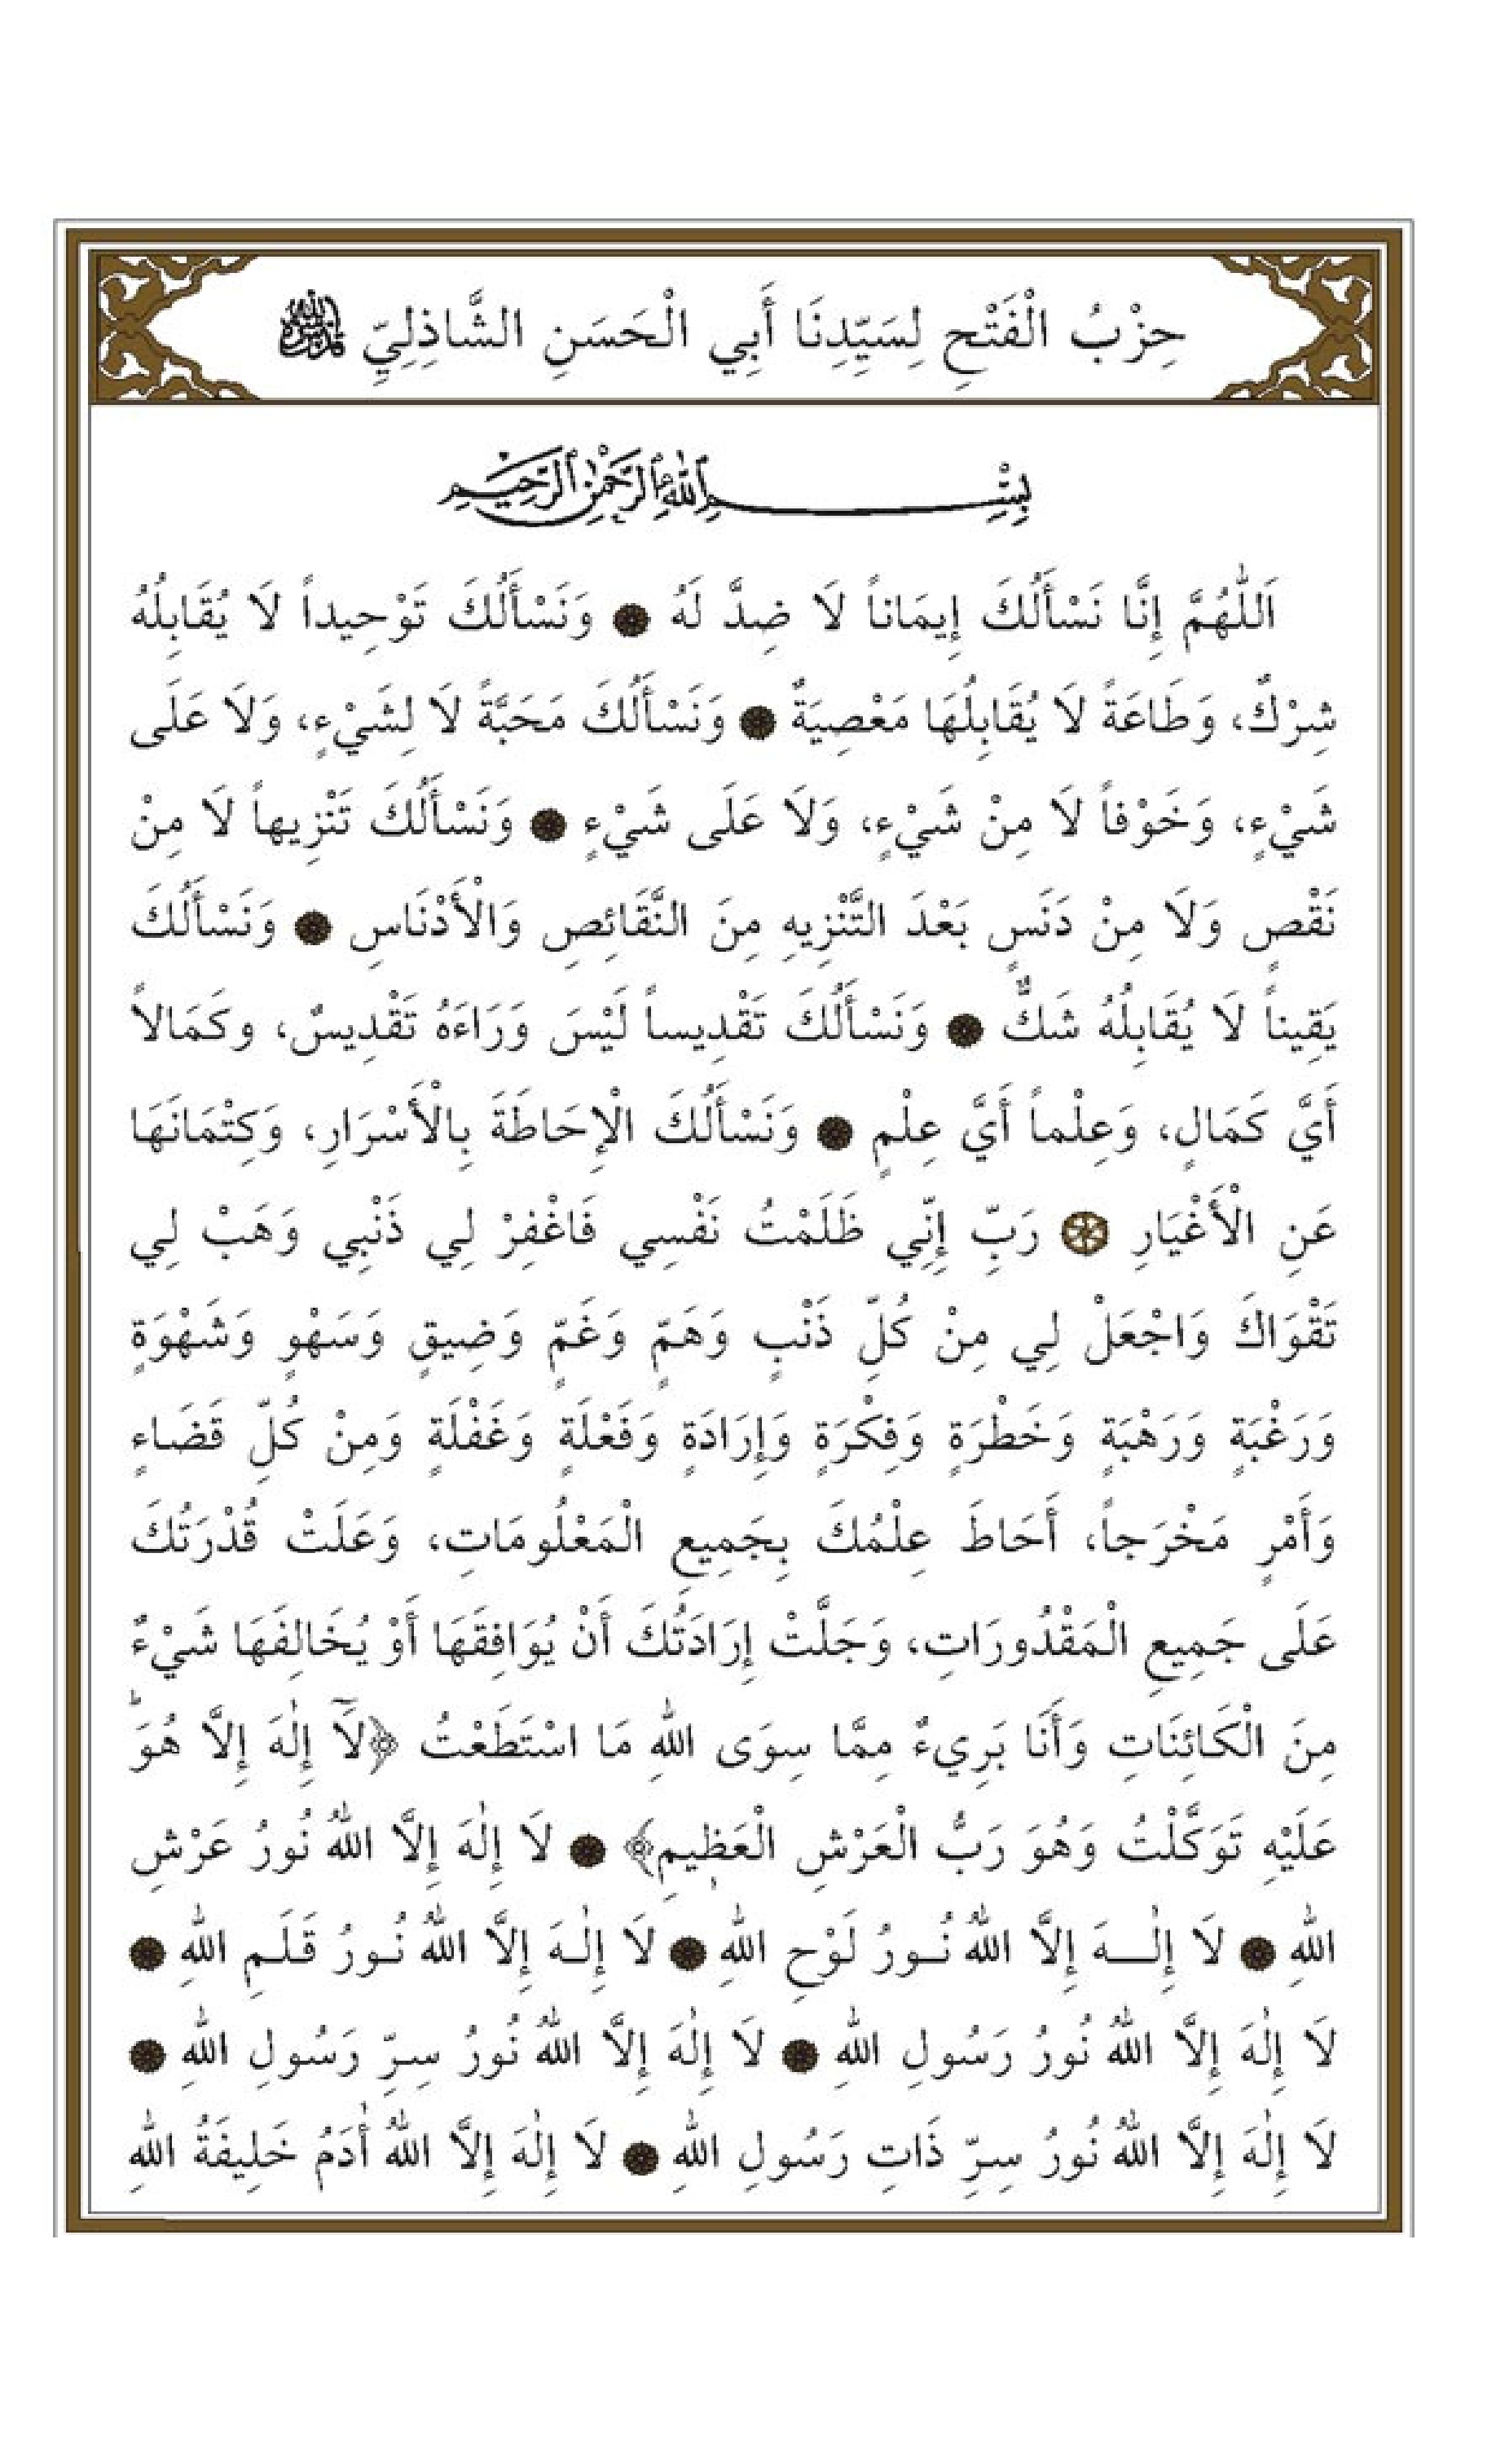 حِزْبُ الْفَتْحِ لِسَيِّدِنَا أَبِي الْحَسَنِ الشَّاذِلِيِّ
بِسْمِ اللّٰهِ الرَّحْمٰنِ الرَّحِيمِ
اَللّٰهُمَّ إِنَّا نَسْأَلُكَ إِيمَاناً لَا ضِدَّ لَهُ ۞ وَنَسْأَلُكَ تَوْحِيداً لَا يُقَابِلُهُ
شِرْكٌ، وَطَاعَةً لَا يُقَابِلُهَا مَعْصِيَةٌ ۞ وَنَسْأَلُكَ مَحَبَّةً لَا لِشَيْءٍ، وَلَا عَلَى
شَيْءٍ، وَخَوْفاً لَا مِنْ شَيْءٍ، وَلَا عَلَى شَيْءٍ ۞ وَنَسْأَلُكَ تَنْزِيهاً لَا مِنْ
نَقْصٍ وَلَا مِنْ دَنَسٍ بَعْدَ التَّنْزِيهِ مِنَ النَّقَائِصِ وَالْأَدْنَاسِ ۞ وَنَسْأَلُكَ
يَقِيناً لَا يُقَابِلُهُ شَكٌّ ۞ وَنَسْأَلُكَ تَقْدِيساً لَيْسَ وَرَاءَهُ تَقْدِيسٌ، وكَمَالاً
أَيَّ كَمَالٍ، وَعِلْماً أَيَّ عِلْمٍ ۞ وَنَسْأَلُكَ الْإِحَاطَةَ بِالْأَسْرَارِ، وَكِتْمَانَهَا
عَنِ الْأَغْيَارِ ۞ رَبِّ إِنِّي ظَلَمْتُ نَفْسِي فَاغْفِرْ لِي ذَنْبِي وَهَبْ لِي
تَقْوَاكَ وَاجْعَلْ لِي مِنْ كُلِّ ذَنْبٍ وَهَمٍّ وَغَمٍّ وَضِيقٍ وَسَهْوٍ وَشَهْوَةٍ
وَرَغْبَةٍ وَرَهْبَةٍ وَخَطْرَةٍ وَفِكْرَةٍ وَإِرَادَةٍ وَفَعْلَةٍ وَغَفْلَةٍ وَمِنْ كُلِّ قَضَاءٍ
وَأَمْرٍ مَخْرَجاً، أَحَاطَ عِلْمُكَ بِجَمِيعِ الْمَعْلُومَاتِ، وَعَلَتْ قُدْرَتُكَ
عَلَى جَمِيعِ الْمَقْدُورَاتِ، وَجَلَّتْ إِرَادَتُكَ أَنْ يُوَافِقَهَا أَوْ يُخَالِفَهَا شَيْءٌ
مِنَ الْكَائِنَاتِ وَأَنَا بَرِيءٌ مِمَّا سِوَى اللّٰهِ مَا اسْتَطَعْتُ ﴿لَآ إِلٰهَ إِلَّا هُوَؕ
عَلَيْهِ تَوَكَّلْتُ وَهُوَ رَبُّ الْعَرْشِ الْعَظٖيمِ﴾ ۞ لَا إِلٰهَ إِلَّا اللّٰهُ نُورُ عَرْشِ
اللّٰهِ ۞ لَا إِلٰـــهَ إِلَّا اللّٰهُ نُـورُ لَوْحِ اللّٰهِ ۞ لَا إِلٰـهَ إِلَّا اللّٰهُ نُـورُ قَـلَـمِ اللّٰهِ ۞
لَا إِلٰهَ إِلَّا اللّٰهُ نُورُ رَسُولِ اللّٰهِ ۞ لَا إِلٰهَ إِلَّا اللّٰهُ نُورُ سِرِّ رَسُولِ اللّٰهِ ۞
لَا إِلٰهَ إِلَّا اللّٰهُ نُورُ سِرِّ ذَاتِ رَسُولِ اللّٰهِ ۞ لَا إِلٰهَ إِلَّا اللّٰهُ أٰدَمُ خَلِيفَةُ اللّٰهِ